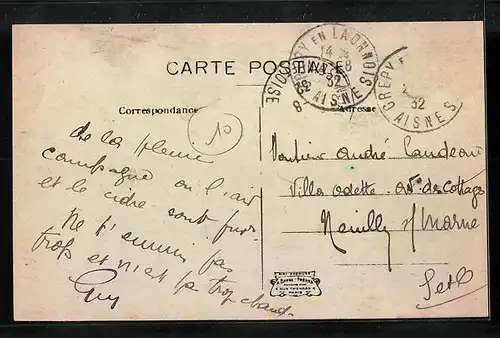 CARTE POSTALE
Correspondance
Adresse
CREPY EN LAONNOIS
14
8
32
AISNE
CREPY E
2
32
AISNE S
10
De la pleine
campagne où l'air
et le cidre sont purs.
Ne t'ennuie pas
trop et n'aie pas trop chaud.
Guy
Monsieur André Landeau
Villa Odette av. des Cottages
Neuilly s/ Marne
S et O
PARIS